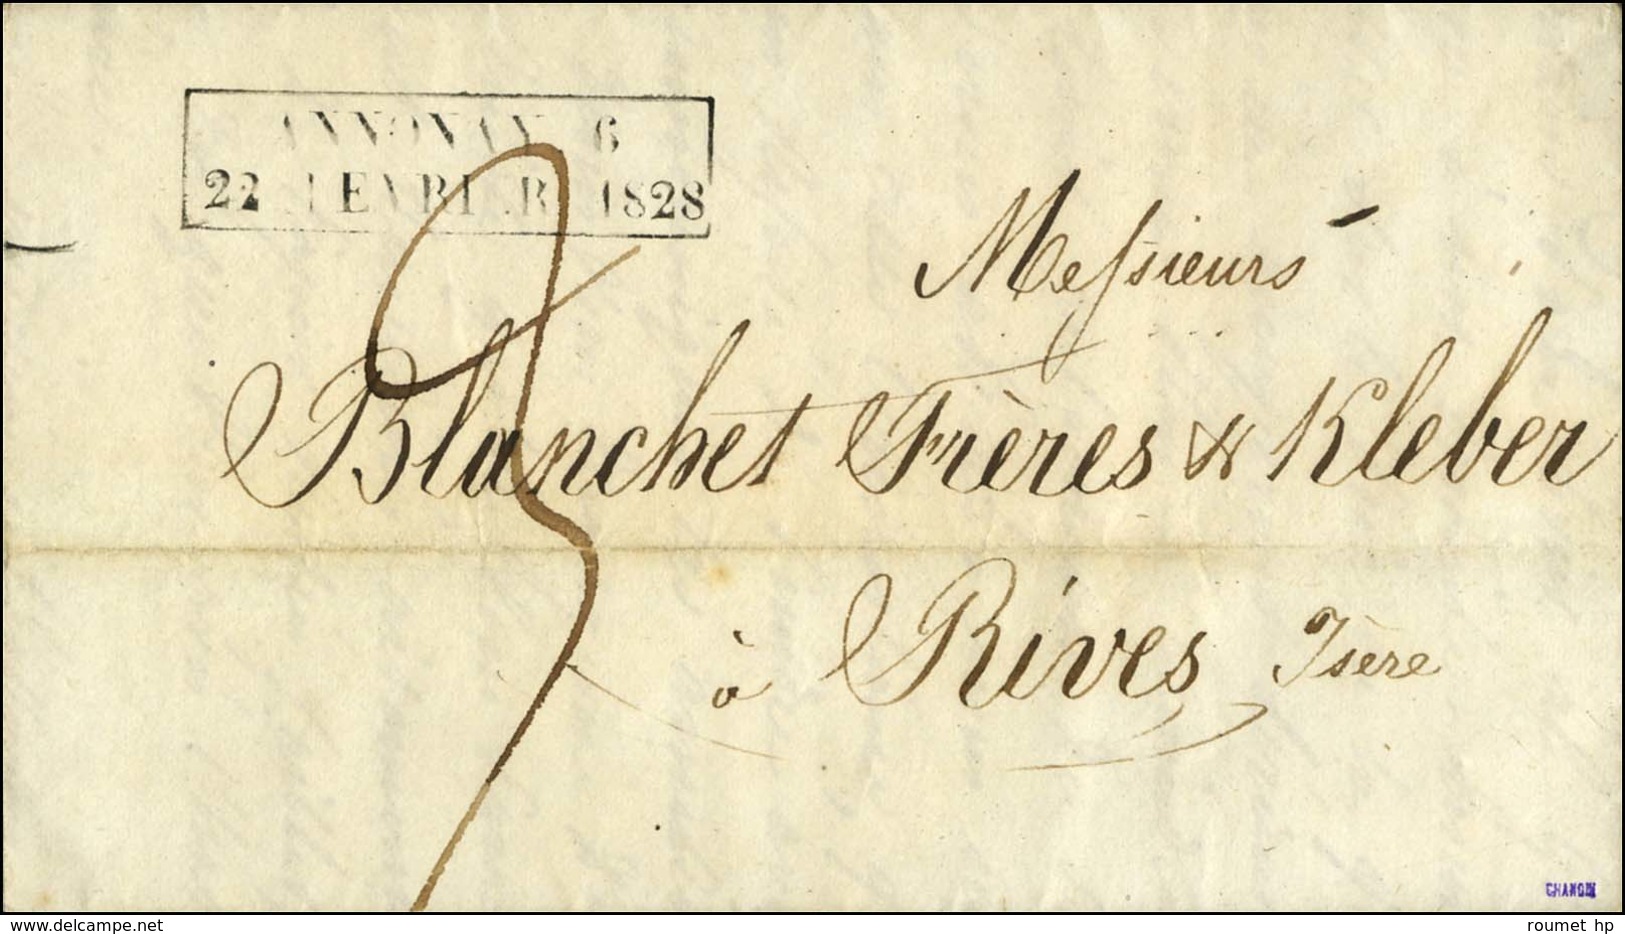 ANNONAY 6
22 FEVRIER 1828
3
Messieurs
Blanchet Frères & Kleber
à Rives Isère
www.delcampe.net
roumet hp